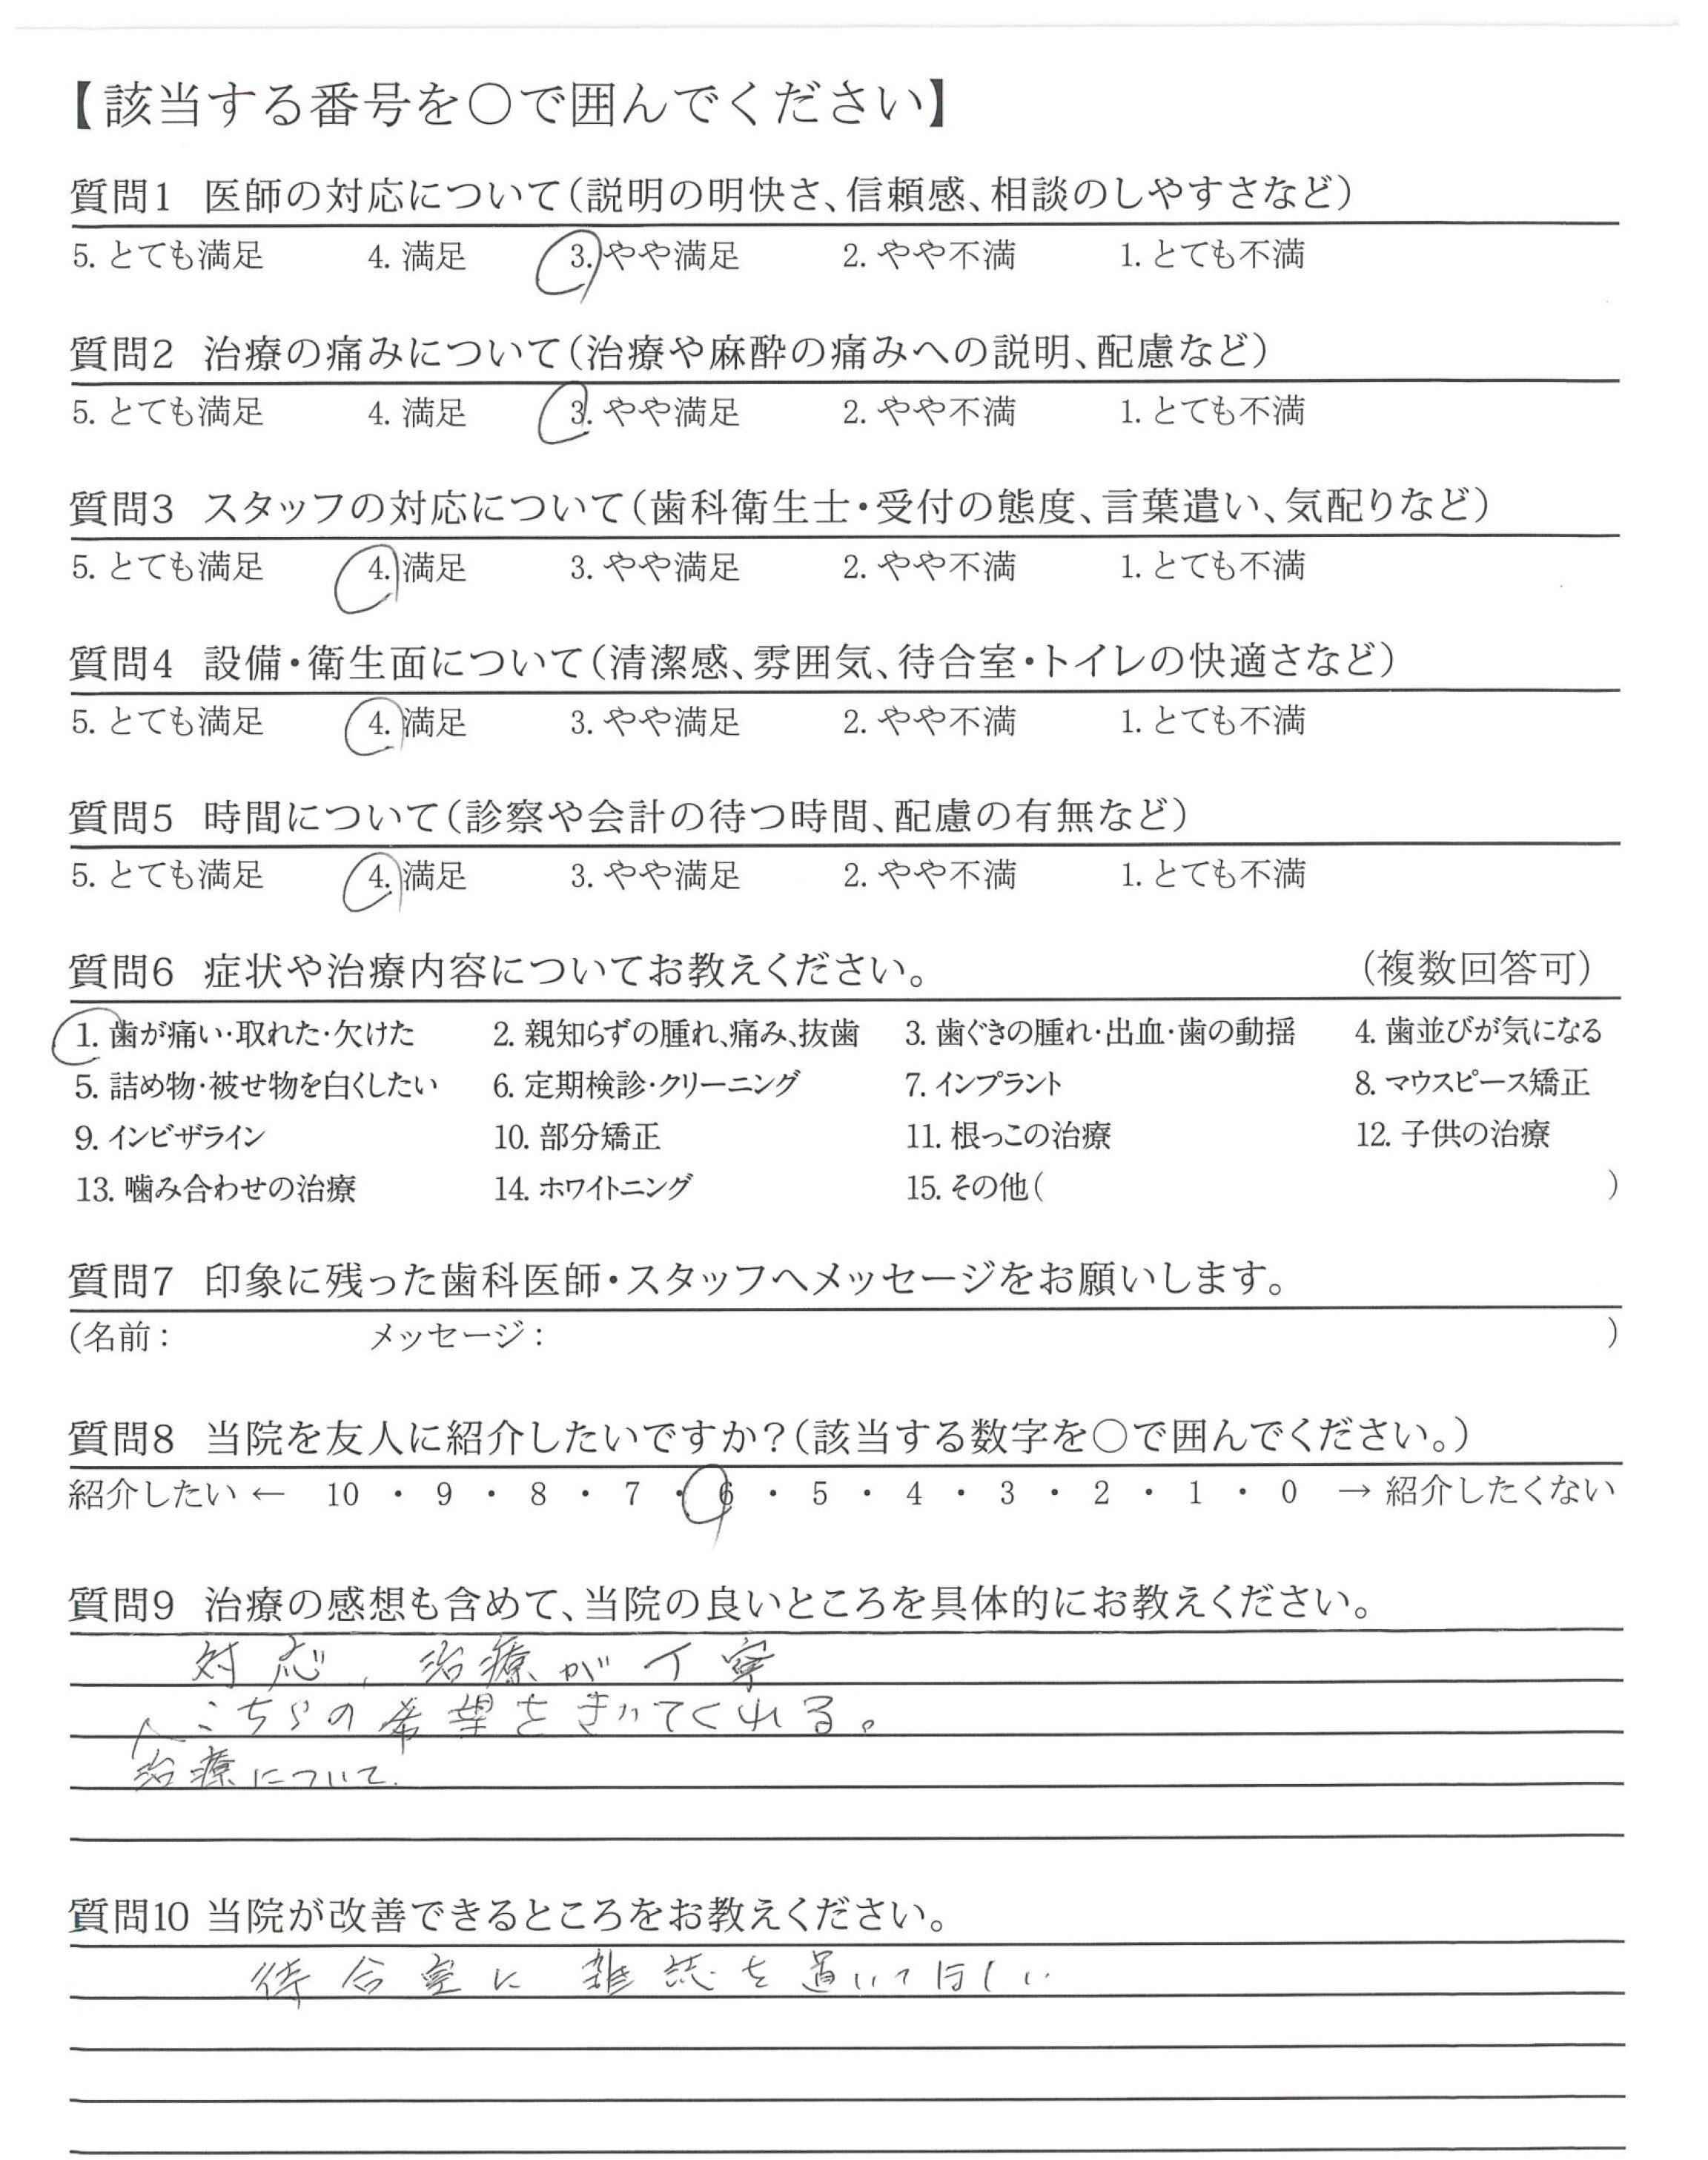 【該当する番号を○で囲んでください】
質問1 医師の対応について(説明の明快さ、信頼感、相談のしやすさなど)
5. とても満足 4. 満足 3. やや満足 2. やや不満 1. とても不満
質問2 治療の痛みについて(治療や麻酔の痛みへの説明、配慮など)
5. とても満足 4. 満足 3. やや満足 2. やや不満 1. とても不満
質問3 スタッフの対応について(歯科衛生士・受付の態度、言葉遣い、気配りなど)
5. とても満足 4. 満足 3. やや満足 2. やや不満 1. とても不満
質問4 設備・衛生面について(清潔感、雰囲気、待合室・トイレの快適さなど)
5. とても満足 4. 満足 3. やや満足 2. やや不満 1. とても不満
質問5 時間について(診察や会計の待つ時間、配慮の有無など)
5. とても満足 4. 満足 3. やや満足 2. やや不満 1. とても不満
質問6 症状や治療内容についてお教えください。 (複数回答可)
1. 歯が痛い・取れた・欠けた 2. 親知らずの腫れ、痛み、抜歯 3. 歯ぐきの腫れ・出血・歯の動揺 4. 歯並びが気になる
5. 詰め物・被せ物を白くしたい 6. 定期検診・クリーニング 7. インプラント 8. マウスピース矯正
9. インビザライン 10. 部分矯正 11. 根っこの治療 12. 子供の治療
13. 噛み合わせの治療 14. ホワイトニング 15. その他( )
質問7 印象に残った歯科医師・スタッフへメッセージをお願いします。
(名前: メッセージ: )
質問8 当院を友人に紹介したいですか?(該当する数字を○で囲んでください。)
紹介したい ← 10 ・ 9 ・ 8 ・ 7 ・ 6 ・ 5 ・ 4 ・ 3 ・ 2 ・ 1 ・ 0 → 紹介したくない
質問9 治療の感想も含めて、当院の良いところを具体的にお教えください。
対応、治療が丁寧
こちらの希望をきいてくれる。
治療について.
質問10 当院が改善できるところをお教えください。
待合室に雑誌を置いてほしい